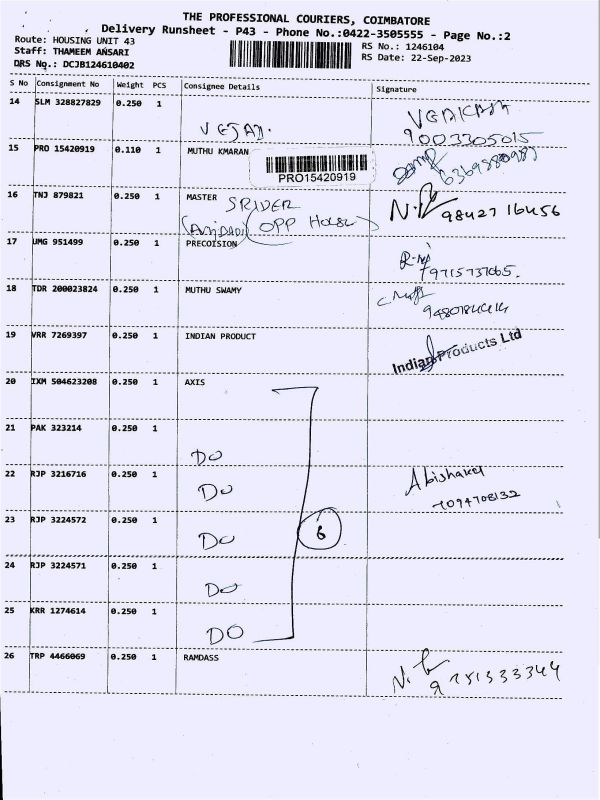 THE PROFESSIONAL COURIERS, COIMBATORE
Delivery Runsheet - P43 - Phone No.:0422-3505555 - Page No.:2
Route: HOUSING UNIT 43
Staff: THAMEEM ANSARI
DRS No.: DCJB124610402
RS No.: 1246104
RS Date: 22-Sep-2023
S No Consignment No Weight PCS Consignee Details Signature
14 SLM 328827829 0.250 1
9003305015
15 PRO 15420919 0.110 1 MUTHU KMARAN
PRO15420919
16 TNJ 879821 0.250 1 MASTER SRIDER
(OPP House)
98427 16456
17 UMG 951499 0.250 1 PRECOISION
18 TDR 200023824 0.250 1 MUTHU SWAMY
19 VRR 7269397 0.250 1 INDIAN PRODUCT
Indian Products Ltd
20 IXM 504623208 0.250 1 AXIS
21 PAK 323214 0.250 1 DO
22 RJP 3216716 0.250 1 DO
23 RJP 3224572 0.250 1 DO 6
24 RJP 3224571 0.250 1 DO
25 KRR 1274614 0.250 1 DO
26 TRP 4466069 0.250 1 RAMDASS